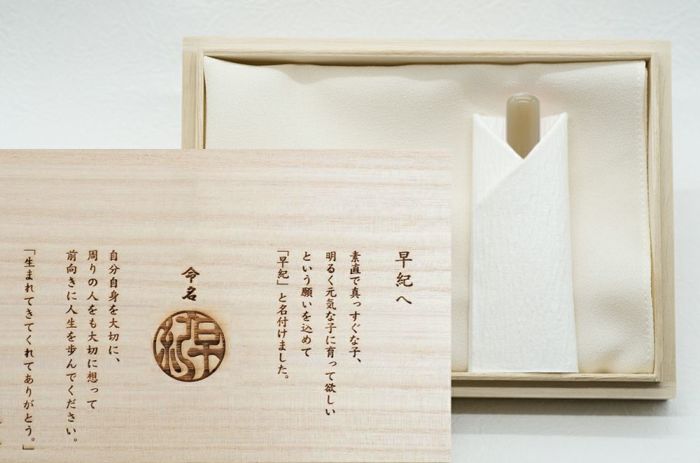 早紀へ
素直で真っすぐな子、
明るく元気な子に育って欲しい
という願いを込めて
「早紀」と名付けました。
命名
早紀
自分自身を大切に、
周りの人をも大切に想って
前向きに人生を歩んでください。
「生まれてきてくれてありがとう。」